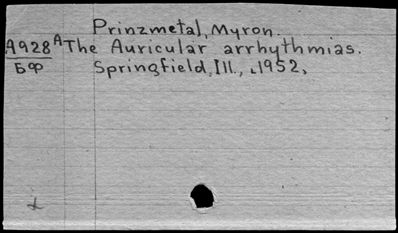 Prinzmetal, Myron.
A928 A The Auricular arrhythmias.
БФ Springfield, Ill., 1952,